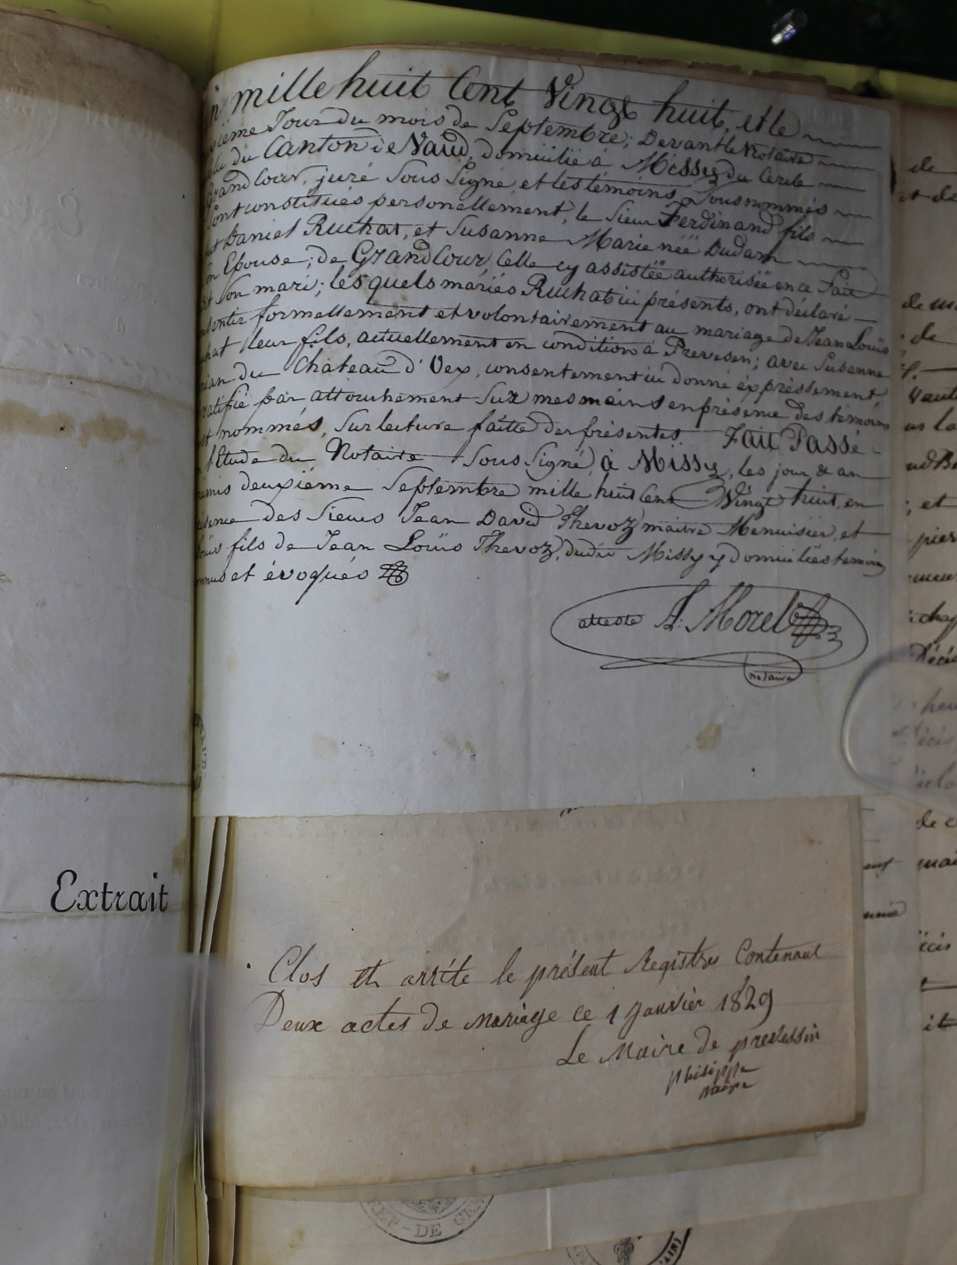 mille huit Cent Vingt huit, et le
Jour du mois de Septembre; Devant le Notaire
du Canton de Vaud, domicilié à Missy du Cercle
Grandcour, juré Sous Signé, et les témoins Sousnommés
Sont constitués personellement, le Sieur Ferdinand fils
Daniel Ruchat, et Susanne Marie néë Dudan
Epouse; de Grandcour, Celle cy assistéë authoriséë en ce Fait
Son mari; lesquels mariés Ruchat ici présents, ont déclaré
formellement et volontairement au mariage de Jean Louïs
leur fils, actuellement en condition à Prevesin; avec Susanne
du Chateau d'Oex, consentement ici donné expressement,
ratifié par attouchement Sur mes mains en présence des témoins
nommés, Sur lecture faitte des présentes. Fait Passé
l'Etude du Notaire Sous Signé, à Missy, les jour & an
deuxiéme Septembre mille huit Cent Vingt huit, en
des Sieurs Jean David Thevoz maitre Menuisier, et
fils de Jean Louïs Thevoz, dudit Missy y domiciliés temoins
et évoqués
atteste A. Morel
notaire
Extrait
Clos et arréte le présent Registre Contenant
Deux actes de mariage ce 1 janvier 1829
Le Maire de prevessin
philippe
maire